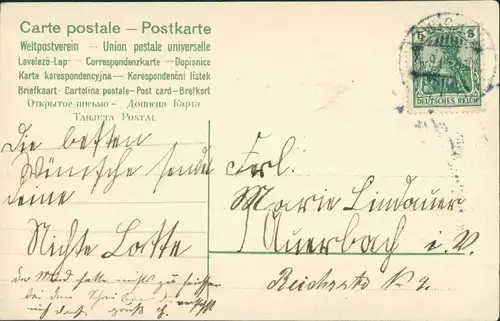 Carte postale — Postkarte
Weltpostverein — Union postale universelle
Levelező-Lap — Correspondenzkarte — Dopisnice
Karta korespondencyjna — Korespondenční listek
Briefkaart — Cartolina postale — Post card — Brefkort
Открытое письмо — Дописна Карта
Tarjeta Postal
5 5
DEUTSCHES REICH
Die besten
Wünsche sendet
deine
Nichte Lotte
bei dem
Frl.
Marie Lindauer
Auerbach i. V.
Reichsstr.